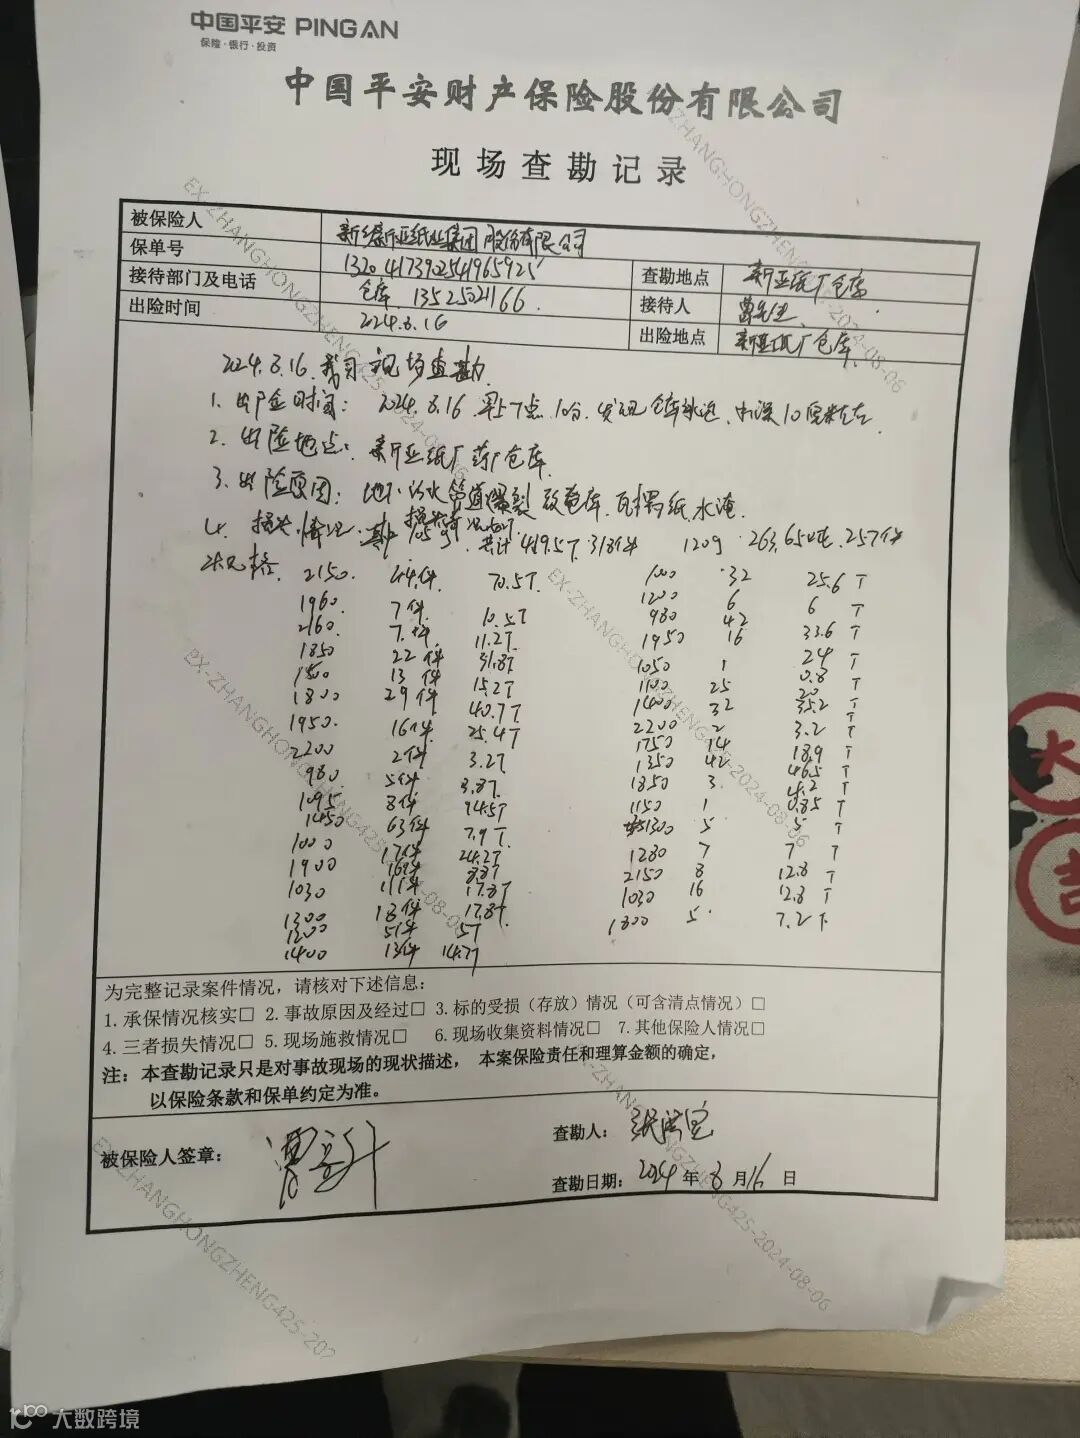 中国平安 PINGAN
保险·银行·投资
中国平安财产保险股份有限公司
现场查勘记录
被保险人 新乡新亚纸业集团股份有限公司
保单号 查勘地点 新亚纸厂仓库
接待部门及电话 仓库 13525021166 接待人 曹先生
出险时间 2024.8.16 出险地点 新亚纸厂仓库
2024.8.16.我司现场查勘
1、出险时间：2024.8.16 早5点10分.发现仓库水淹.水深10厘米左右
2、出险地点：新亚纸厂 仓库.
3、出险原因：地下污水管道爆裂致仓库.瓦楞纸水淹.
4、损失情况. 共计419.5T.318件 120g 263.650吨.257件
规格. 2150. 44件 70.5T 1000 32 25.6T
1960. 7件 10.5T 1200 6 6T
2160. 7件 11.2T 980 42 33.6T
1850 22件 31.8T 1950 16 24T
1500 13件 15.2T 1050 1 0.8T
1800 29件 40.7T 1100 25 20T
1950. 16件 25.4T 1400 32 35.2T
2200 2件 3.2T 2200 2 3.2T
980 5件 3.8T 1750 14 18.9T
1095 8件 1350 42 46.5T
1450 63件 74.5T 1850 3 4.2T
1000 7.9T 1150 1 0.85T
1900 17件 24.2T 1300 5 5T
1030 11件 8.8T 1280 7 7T
1300 13件 17.8T 2150 8 12.8T
1200 5件 5T 1030 16 12.8T
1400 13件 14.7T 1800 5 7.2T
为完整记录案件情况，请核对下述信息：
1.承保情况核实□ 2.事故原因及经过□ 3.标的受损（存放）情况（可含清点情况）□
4.三者损失情况□ 5.现场施救情况□ 6.现场收集资料情况□ 7.其他保险人情况□
注：本查勘记录只是对事故现场的现状描述，本案保险责任和理算金额的确定，
以保险条款和保单约定为准。
被保险人签章： 查勘人：
查勘日期：2024年8月16日
EX-ZHANGHONGZHENG425-2024-08-06
大
吉
大数跨境